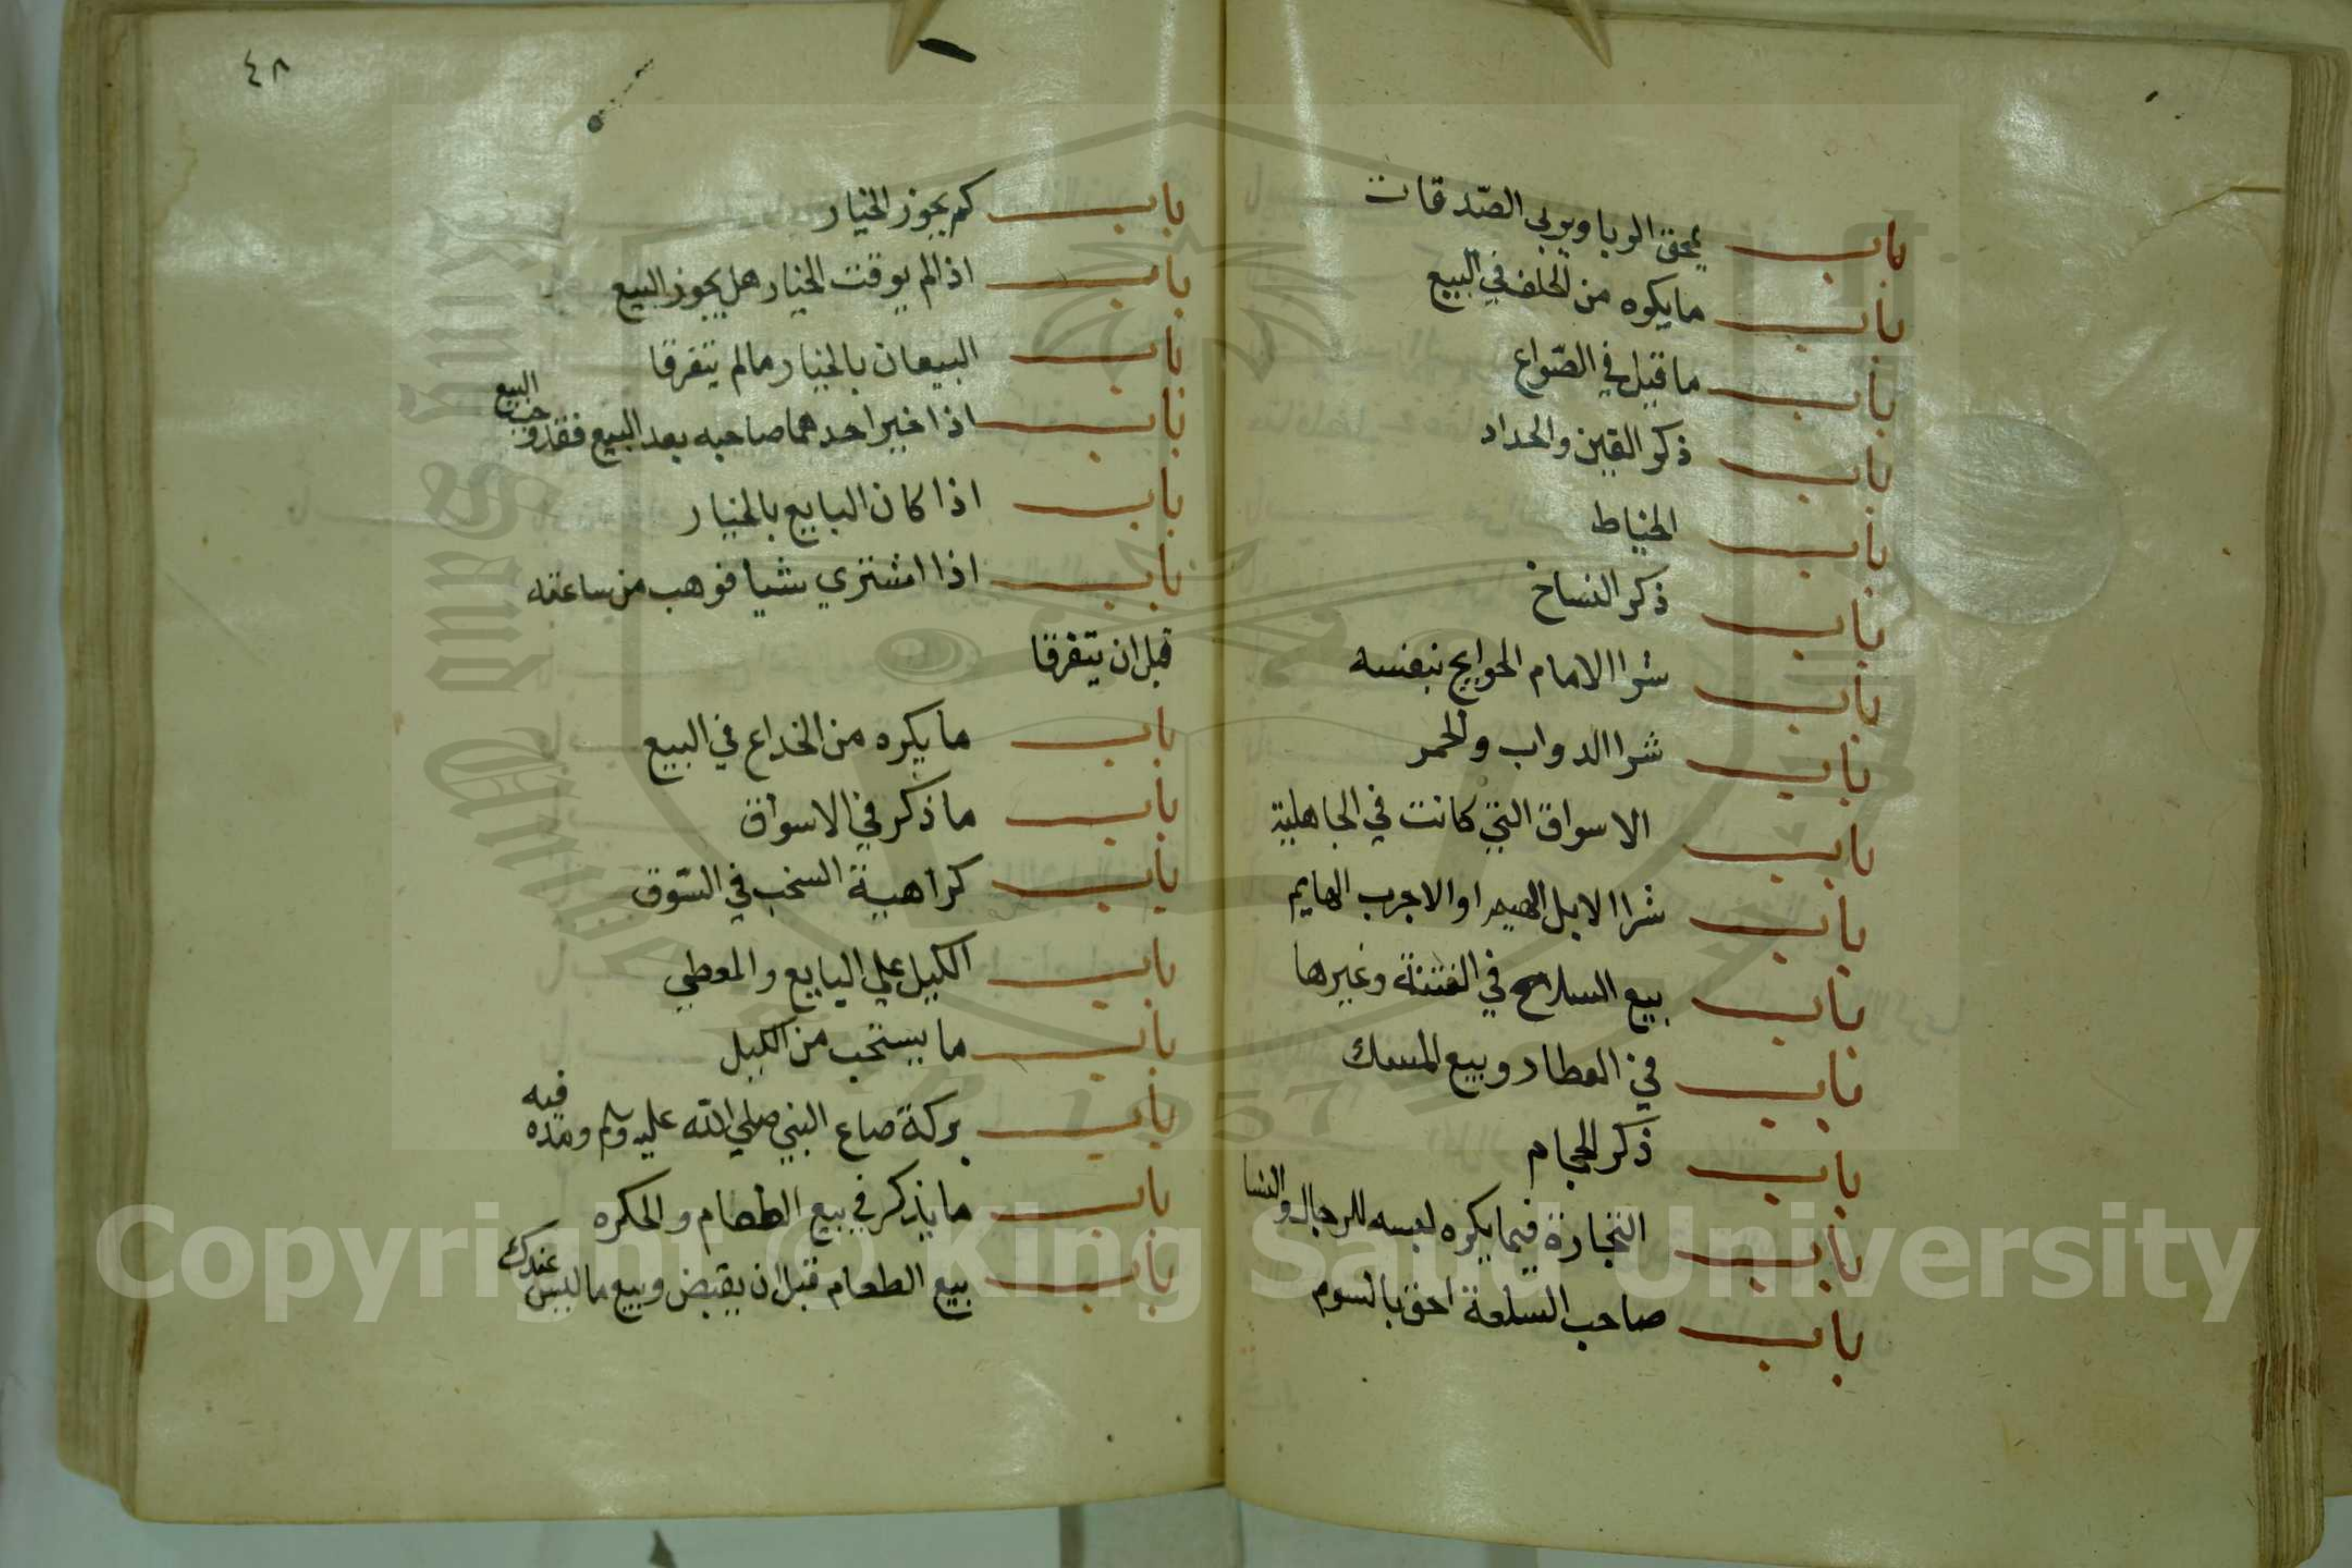 باب يمحق الربا ويربي الصّدقات
باب ما يكره من الحلف في البيع
باب ما قيل في الصّواع
باب ذكر القين والحداد
باب الخياط
باب ذكر النساخ
باب شرا الامام الحوايج بنفسه
باب شرا الدواب والحمر
باب الاسواق التي كانت في الجاهلية
باب شرا الابل الهيم او الاجرب الهايم
باب بيع السلاح في الفتنة وغيرها
باب في العطار وبيع المسك
باب ذكر الحجام
باب التجارة فيما يكره لبسه للرجال والنسا
باب صاحب السّلعة احق بالسوم
٤٨
باب كم يجوز الخيار
باب اذا لم يوقت الخيار هل يجوز البيع
باب البيعان بالخيار مالم يتفرقا
باب اذا خير احدهما صاحبه بعد البيع فقد وجب البيع
باب اذا كان البايع بالخيار
باب اذا اشتري شيا فوهب من ساعته
قبل ان يتفرقا
باب ما يكره من الخداع في البيع
باب ما ذكر في الاسواق
باب كراهية السخب في السّوق
باب الكيل علي البايع والمعطي
باب ما يستحب من الكيل
باب بركة صاع النبي صلي الله عليه وسلم ومده فيه
باب ما يذكر في بيع الطعام والحكره
باب بيع الطعام قبل ان يقبض وبيع ما ليس عندك
Copyright © King Saud University
1957